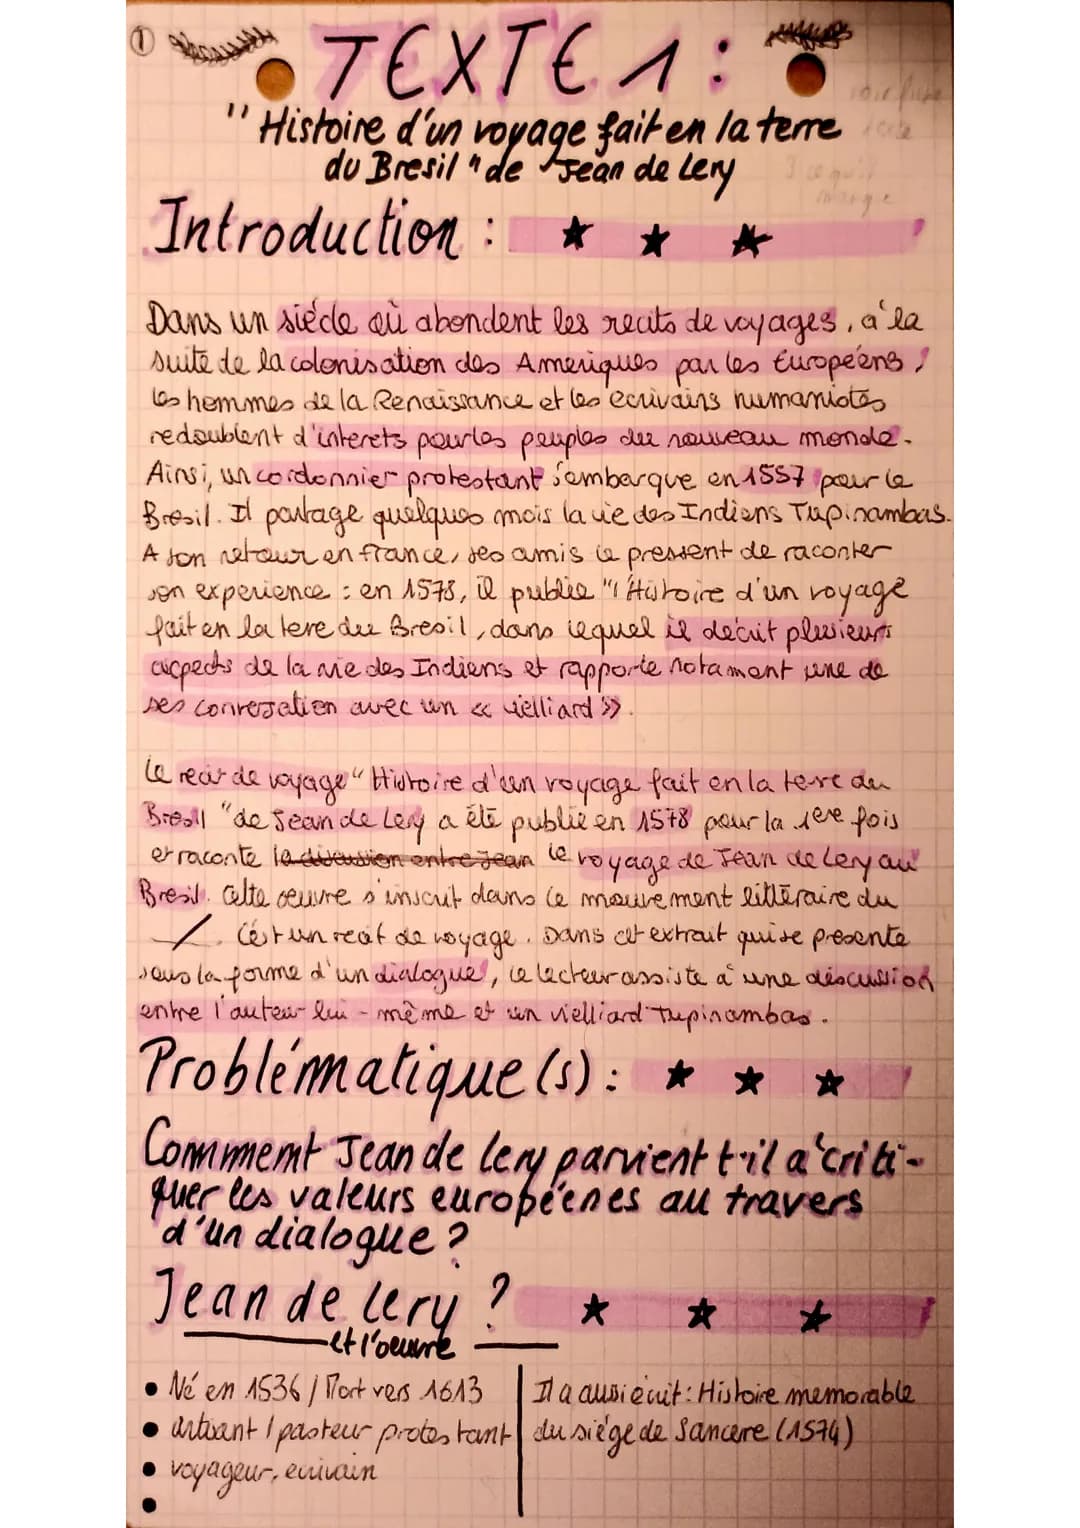 ①
TEXTE 1 :
" Histoire d'un voyage fait en la terre
du Bresil " de Jean de Lery
Introduction :
Dans un siécle où abondent les recits de voyages, à la
suite de la colonisation des Ameriques par les Européens,
les hommes de la Renaissance et les ecrivains humanistes
redoublent d'interets pour les peuples du nouveau monde.
Ainsi, un cordonnier protestant s'embarque en 1557 pour le
Bresil. Il partage quelques mois la vie des Indiens Tupinambas.
A son retour en france, ses amis le pressent de raconter
son experience : en 1578, il publie "l'Histoire d'un voyage
fait en la tere du Bresil, dans lequel il décrit plusieurs
aspects de la vie des Indiens et rapporte notament une de
ses conversation avec un « vielliard ».
Le recit de voyage " Histoire d'un voyage fait en la tere du
Bresil " de Jean de Lery a été publié en 1578 pour la 1ere fois
et raconte la discussion entre Jean le voyage de Jean de Lery au
Bresil. Cette oeuvre s'inscrit dans le mouvement littéraire du
/. C'est un recit de voyage. Dans cet extrait qui se présente
sous la forme d'un dialogue, le lecteur assiste à une discussion
entre l'auteur lui-même et un vielliard Tupinambas.
Problématique(s) :
Comment Jean de Lery parvient t-il à criti-
quer les valeurs européenes au travers
d'un dialogue ?
Jean de Lery ?
et l'oeuvre
• Né en 1536 / Mort vers 1613
• artisant / pasteur protestant
• voyageur, ecrivain
•
Il a aussi écrit : Histoire memorable
du siége de Sancere (1574)